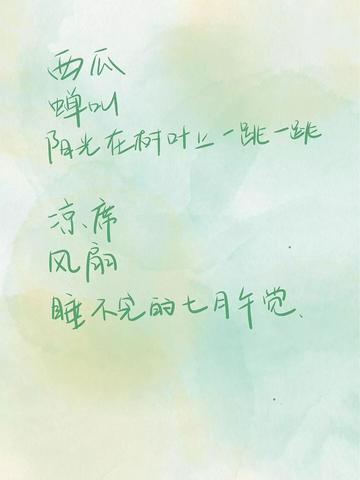 西瓜
蝉叫
阳光在树叶上一跳一跳
凉席
风扇
睡不完的七月午觉、